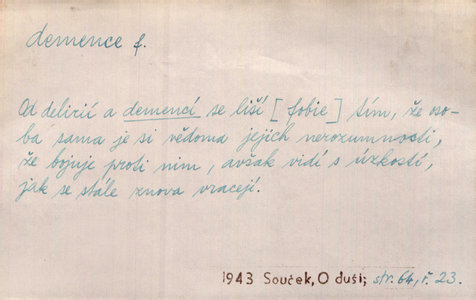 demence f.
Od delirií a demencí se liší [fobie] tím, že oso-
ba sama je si vědoma jejich nerozumnosti,
že bojuje proti nim, avšak vidí s úzkostí,
jak se stále znova vracejí.
1943 Souček, O duši; str. 64, ř. 23.